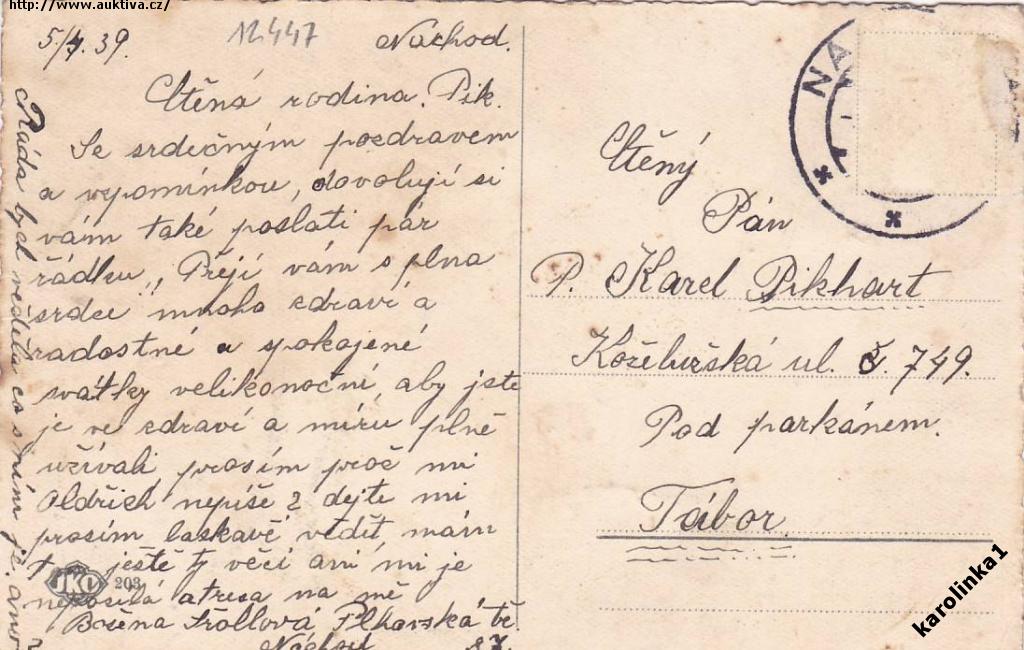 http://www.auktiva.cz/
5/4.39. 12.447 Náchod.
Ctěná rodina. Pik.
Se srdečným pozdravem
a vzpomínkou, dovolují si
vám také poslati pár
řádku, Přejí vám s plna
srdce mnoho zdraví a
radostné a spokojené
svátky velikonoční, aby jste
je ve zdraví a míru plně
užívali, prosím proč mi
Oldřich nepíše ? dejte mi
prosím laskavě vědít mám
ještě ty věci ani mi je
neposílá atresa na mě
Božena Trollová
Náchod 87.
Ráda bych věděla co s ním je.
JKO 203
NA
Ctěný
Pán
P. Karel Pikhart
ul. č. 749.
Pod parkánem.
Tábor
karolinka1